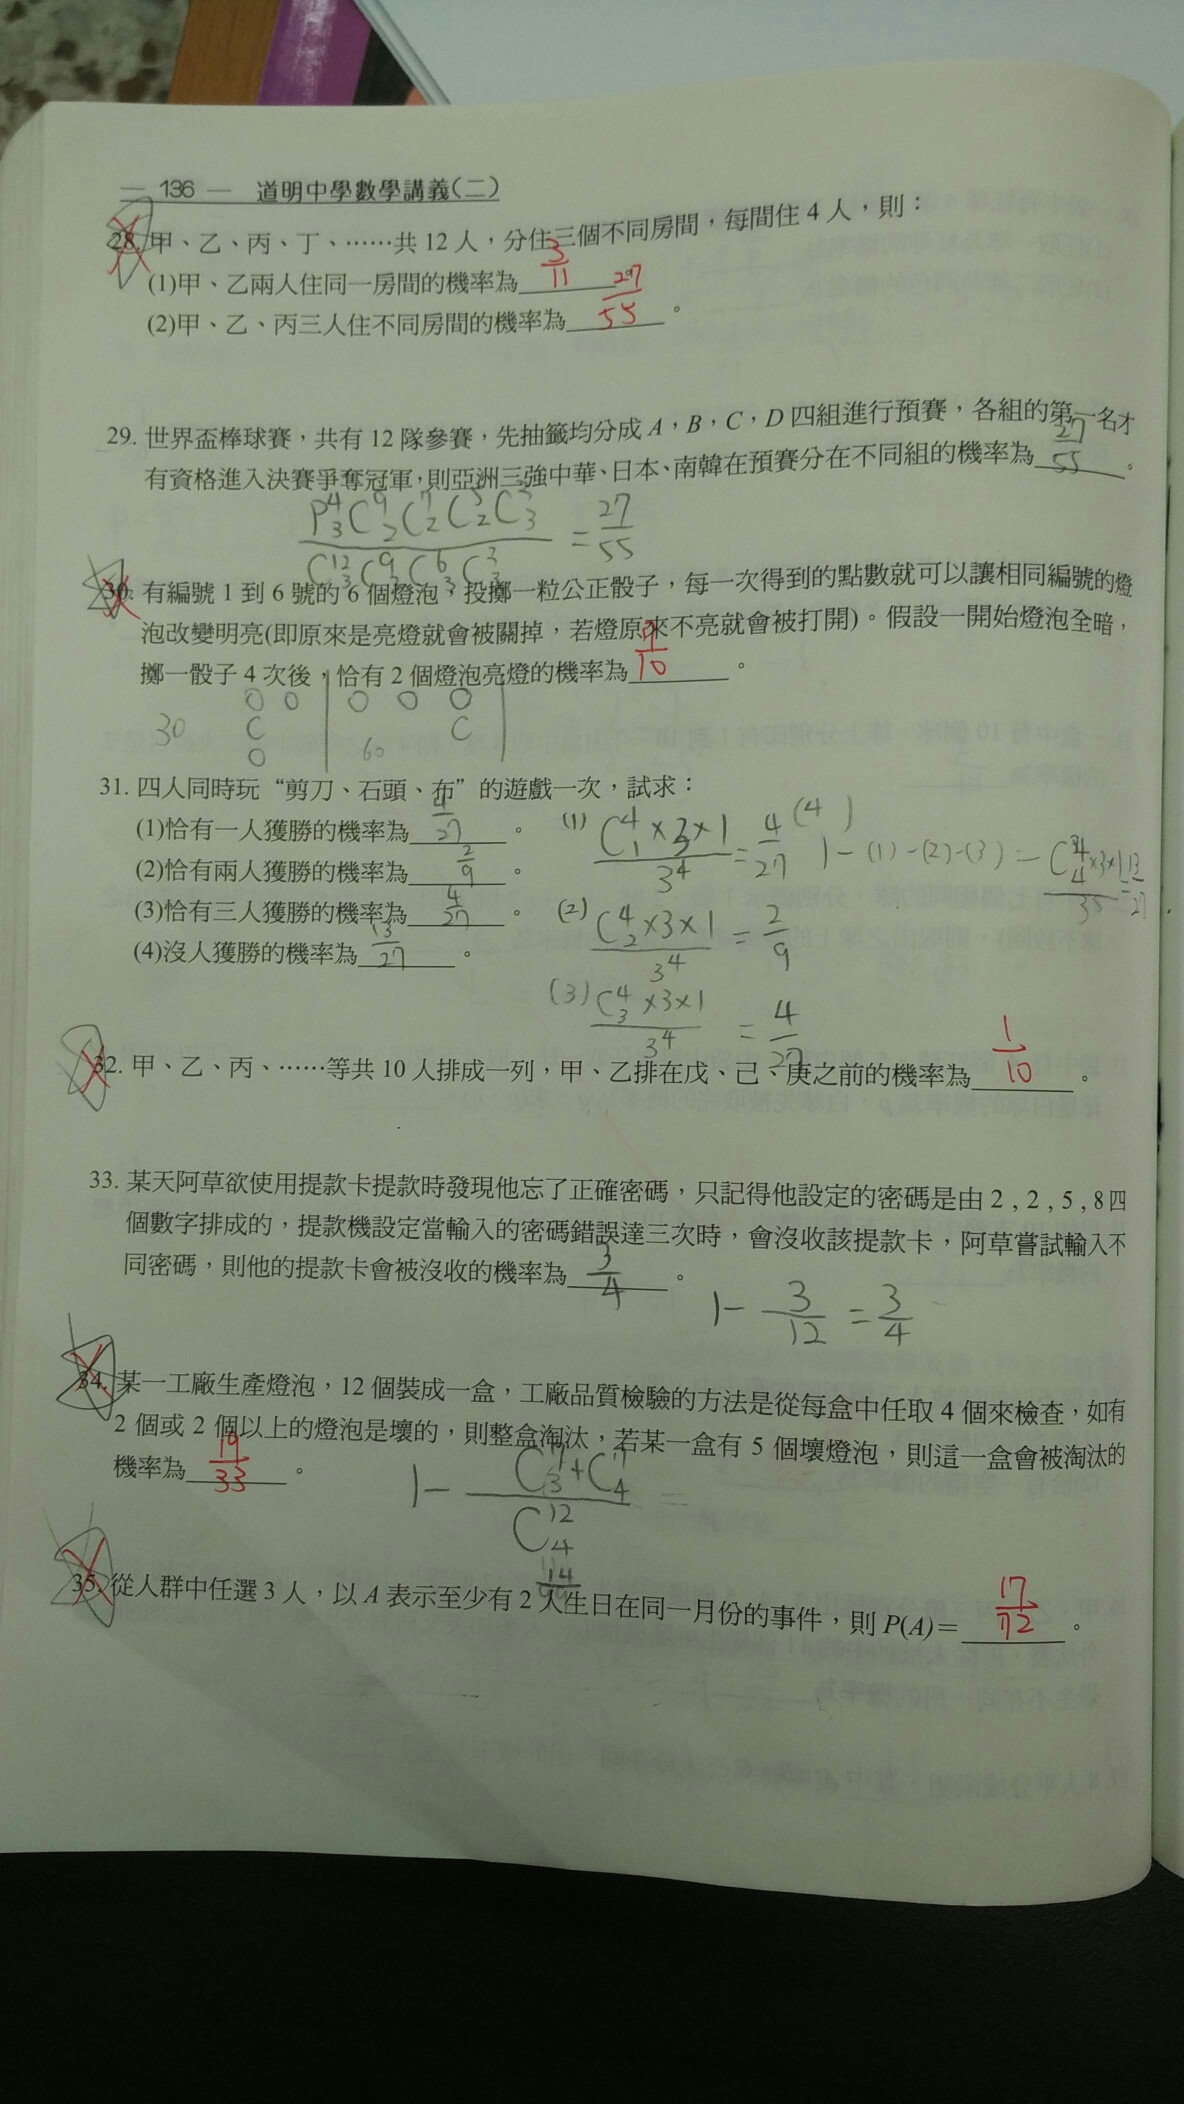 — 136 — 道明中學數學講義(二)
28. 甲、乙、丙、丁、……共 12 人，分住三個不同房間，每間住 4 人，則：
(1)甲、乙兩人住同一房間的機率為 3/11
(2)甲、乙、丙三人住不同房間的機率為 。
29. 世界盃棒球賽，共有 12 隊參賽，先抽籤均分成 A，B，C，D 四組進行預賽，各組的第一名才
有資格進入決賽爭奪冠軍，則亞洲三強中華、日本、南韓在預賽分在不同組的機率為 27/55 。
= 27/55
30. 有編號 1 到 6 號的 6 個燈泡，投擲一粒公正骰子，每一次得到的點數就可以讓相同編號的燈
泡改變明亮(即原來是亮燈就會被關掉，若燈原來不亮就會被打開)。假設一開始燈泡全暗，
擲一骰子 4 次後，恰有 2 個燈泡亮燈的機率為 。
30 60
31. 四人同時玩“剪刀、石頭、布”的遊戲一次，試求：
(1)恰有一人獲勝的機率為 4/27 。
(2)恰有兩人獲勝的機率為 2/9 。
(3)恰有三人獲勝的機率為 4/27 。
(4)沒人獲勝的機率為 13/27 。
(1) C⁴₁×3×1 / 3⁴ = 4/27
(2) C⁴₂×3×1 / 3⁴ = 2/9
(3) C⁴₃×3×1 / 3⁴ = 4/27
(4) 1-(1)-(2)-(3)
32. 甲、乙、丙、……等共 10 人排成一列，甲、乙排在戊、己、庚之前的機率為 1/10 。
33. 某天阿草欲使用提款卡提款時發現他忘了正確密碼，只記得他設定的密碼是由 2 , 2 , 5 , 8 四
個數字排成的，提款機設定當輸入的密碼錯誤達三次時，會沒收該提款卡，阿草嘗試輸入不
同密碼，則他的提款卡會被沒收的機率為 3/4 。
1 - 3/12 = 3/4
34. 某一工廠生產燈泡，12 個裝成一盒，工廠品質檢驗的方法是從每盒中任取 4 個來檢查，如有
2 個或 2 個以上的燈泡是壞的，則整盒淘汰，若某一盒有 5 個壞燈泡，則這一盒會被淘汰的
機率為 19/33 。
1 - (C⁷₃+C⁷₄) / C¹²₄ =
35. 從人群中任選 3 人，以 A 表示至少有 2 人生日在同一月份的事件，則 P(A)= 17/72 。